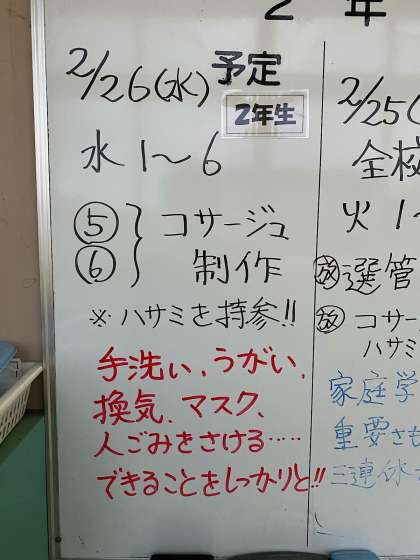 2年
2/26(水) 予定
2年生
水 1〜6
⑤ コサージュ
⑥ 制作
※ハサミを持参!!
手洗い、うがい、
換気、マスク、
人ごみをさける……
できることをしっかりと!!
2/25(
全校
火 1
放 選管
放 コサー
ハサミ
家庭学
重要さも
三連休